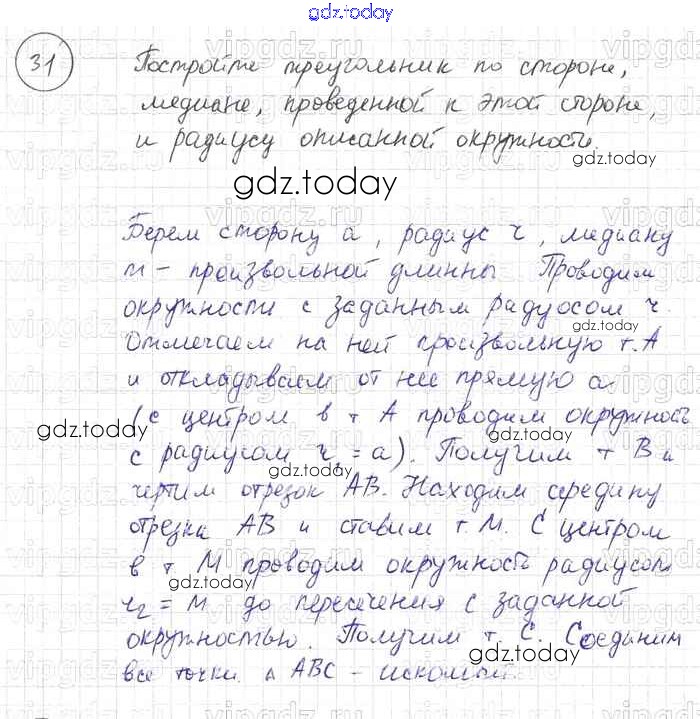 gdz.today
31
Постройте треугольник по стороне,
медиане, проведенной к этой стороне,
и радиусу описанной окружности.
gdz.today
gdz.today
Берем сторону a, радиус r, медиану
m - произвольной длинны Проводим
окружности с заданным радуосом r.
gdz.today
Отмечаем на ней произвольную т. A
и откладываем от нее прямую a
(с центром в т A проводим окружность
gdz.today
с радиусом r₁ = a). Получим т B и
gdz.today
чертим отрезок AB. Находим середину
отрезка AB и ставим т. M. С центром
в т M проводим окружность радиусом
gdz.today
r₂ = M до пересечения с заданной
окружностью. Получим т. C. Соединим
gdz.today
все точки. △ ABC - искомый.